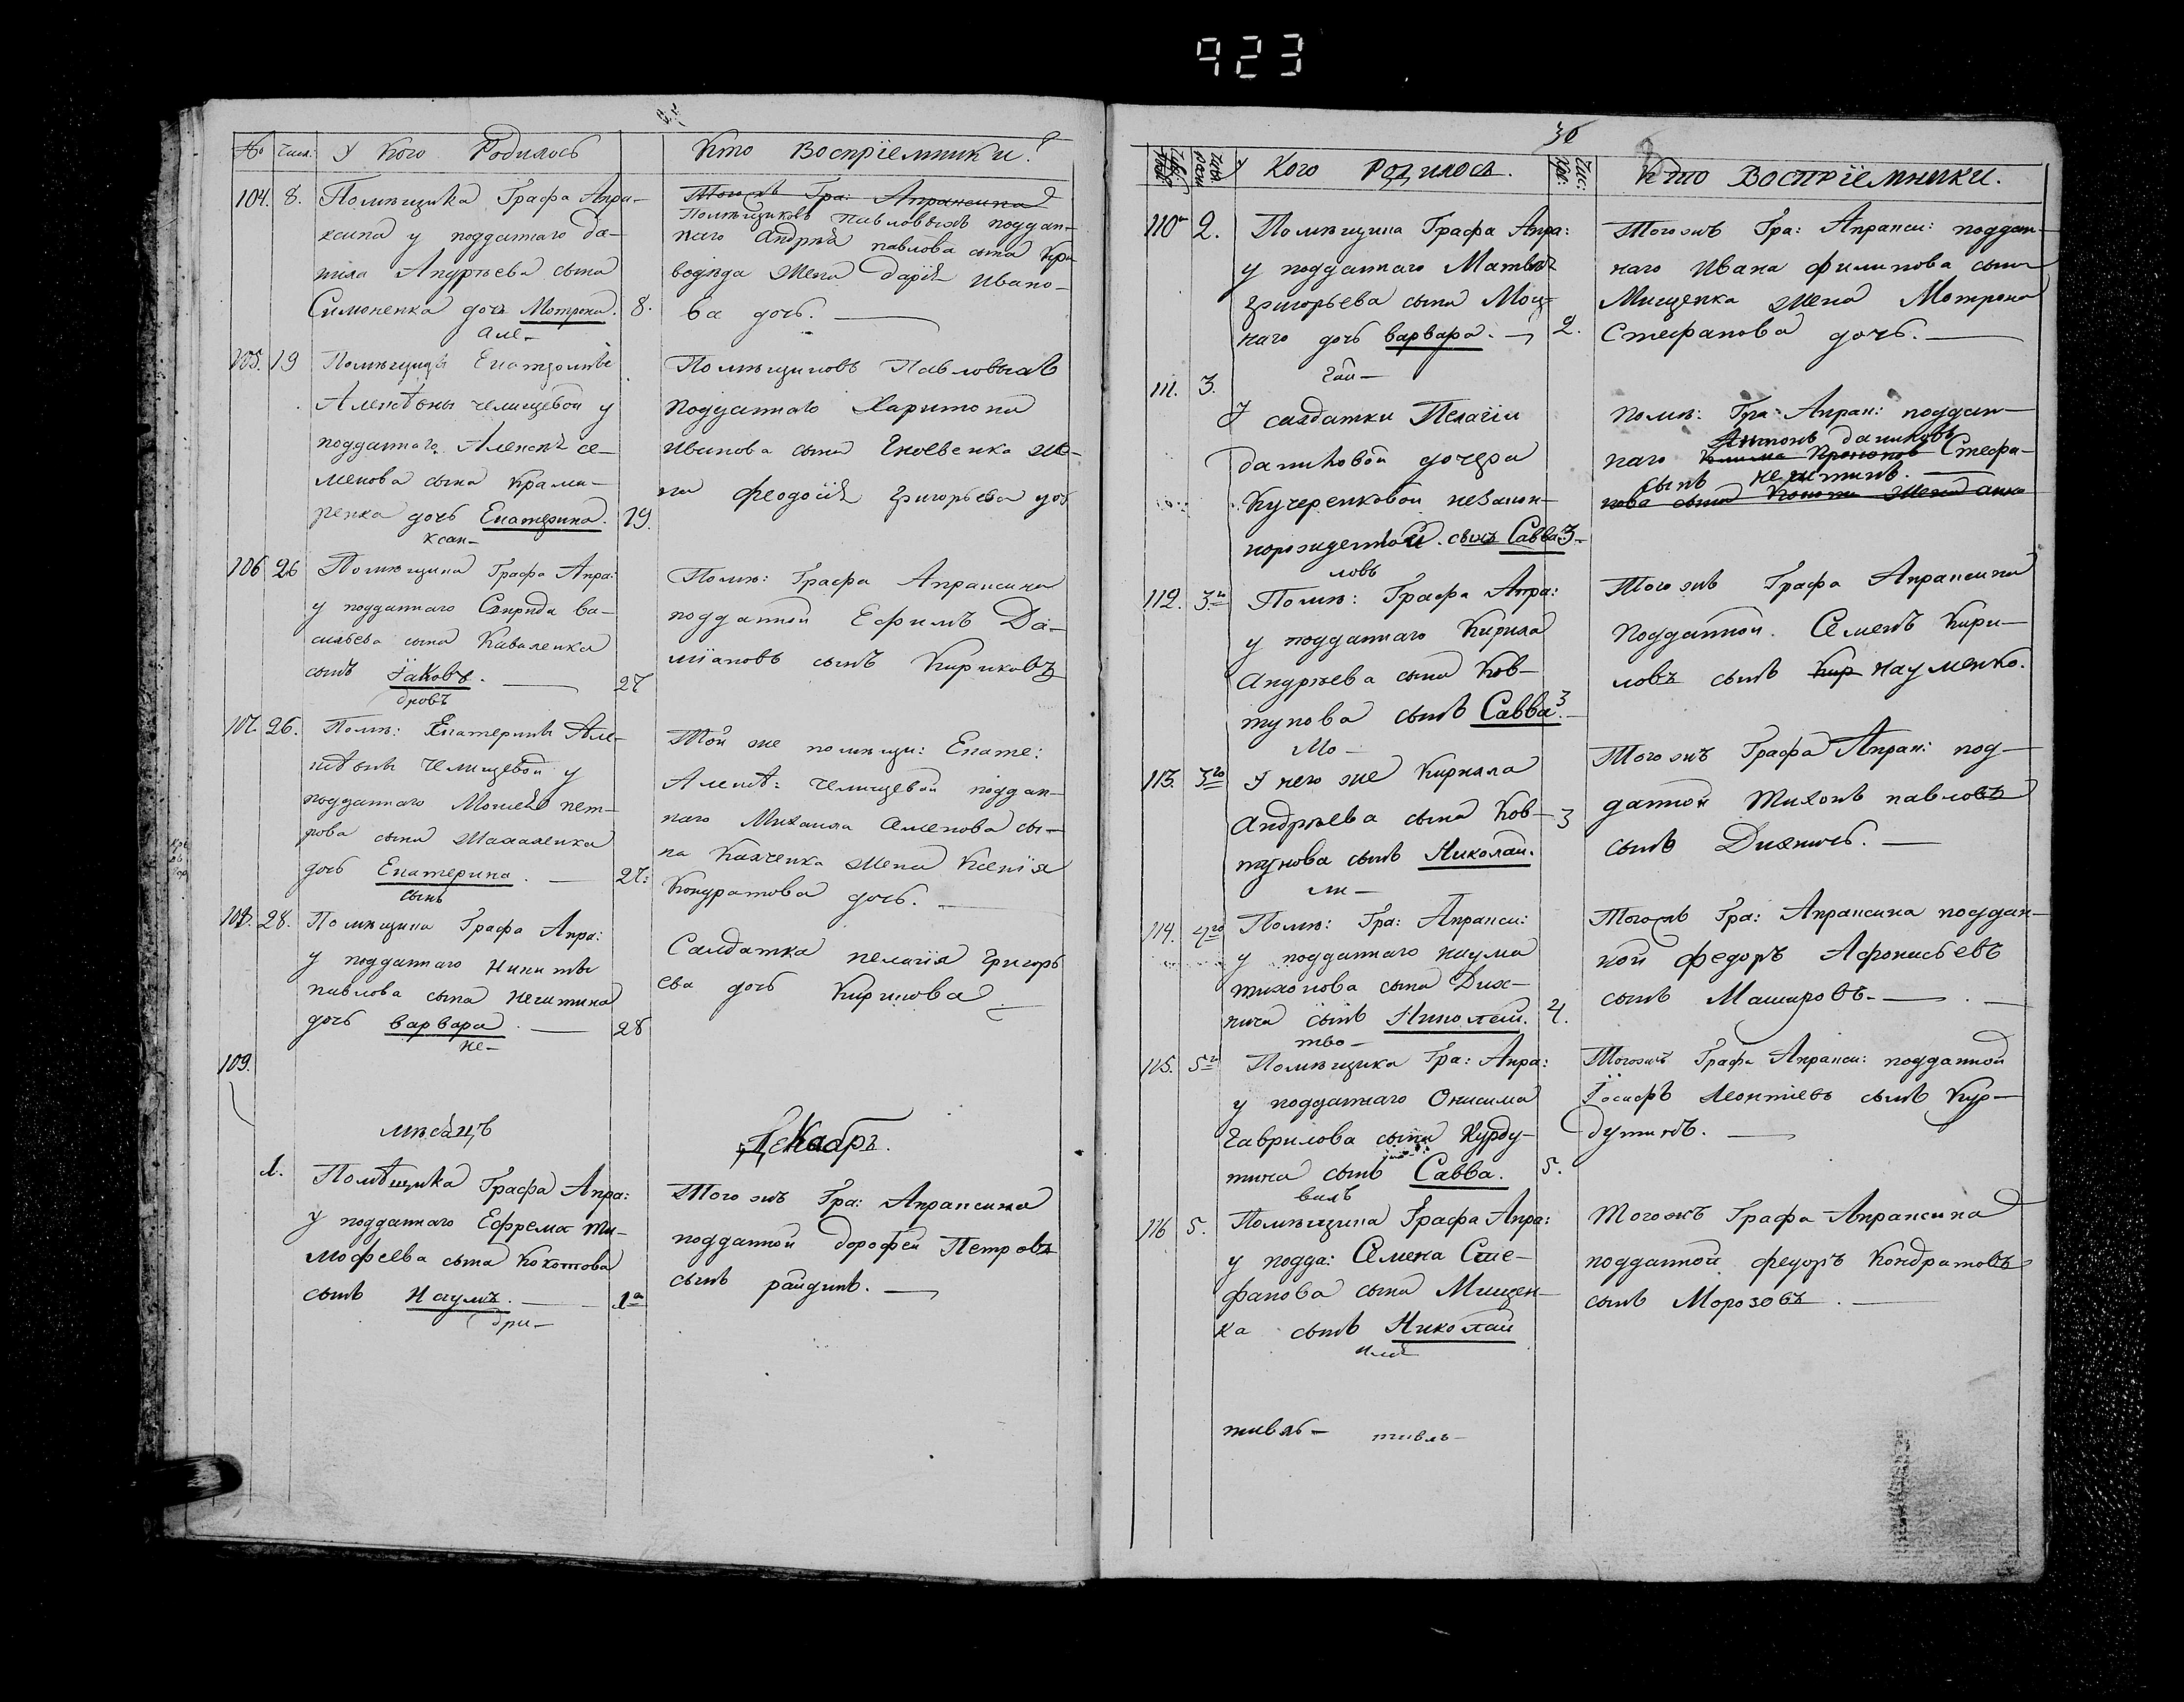 423
№ Числ: У Кого Родилось Кто Воспріемники?
104. 8. Помѣщика Графа Апра-
ксина у подданнаго Да-
нила Андрѣева сына
Симоненка дочь Мотрона. 8.
Але-
Тогожъ Гра: Апраксина
Помѣщиковъ Павловыхъ поддан-
наго Андрѣя Павлова сына
жена Дарія Ивано-
ва дочь.
105. 19 Помѣщицы Екатерины
Алексѣвны Челищевой у
подданнаго Алексѣя Се-
менова сына Крама-
ренка дочь Екатерина. 19.
ксан-
Помѣщиковъ Павловыхъ
подданнаго Харитона
Иванова сына Гноевенка же-
на Феодосія Григорьева доч
106 26 Помѣщика Графа Апра:
у подданнаго Спирида Ва-
сильева сына Коваленка
сынъ Іаковъ. 27
Помѣ: Графа Апраксина
подданной Ефимъ Да-
міановъ сынъ Кириковъ
107. 26. Помѣ: Екатерины Але-
ксѣвны Челищевой у
подданнаго Моисея Пет-
рова сына Шахаленка
дочь Екатерина. 27:
сынъ
Той же помѣщи: Екате:
Алексѣ: Челищевой поддан-
наго Михаила Семенова сы-
на Калченка жена Ксенія
Кондратова дочь.
108. 28. Помѣщика Графа Апра:
у подданнаго Никиты
Павлова сына Нечитина
дочь Варвара. 28
не-
Салдатка Пелагія Григорь
ева дочь Кирикова
109.
мѣсяцъ Декабрь.
1. Помѣщика Графа Апра:
у подданнаго Ефрема Ти-
мофеева сына Кохотова
сынъ Наумъ. 1а
дри-
Того жъ Гра: Апраксина
подданной Дорофей Петровъ
сынъ Райдинъ.
36
У Кого Родилось. Чис: Кто Воспріемники.
110 2. Помѣщика Графа Апра:
у подданнаго Матвѣя
Григорьева сына Моц-
наго дочь Варвара. 2.
гай-
Тогожъ Гра: Апракси: поддан-
наго Ивана Филипова сына
Мищенка жена Мотрона
Стефанова дочь.
111. 3. У салдатки Пелагіи
Даниковой дочери
Кучеренковой незакон-
норожденной. сынъ Савва 3.
ловъ
Помѣ: Гра: Апран: поддан-
Антонъ Даниловъ
наго Клима Стефа-
сынъ Нечитинъ.
нова сына жена Анна
112. 3и Помѣ: Графа Апра:
у подданнаго Кирила
Андрѣева сына Ков-
тунова сынъ Савва 3.
Мо-
Того жъ Графа Апраксина
подданной. Семенъ Кири-
ловъ сынъ Кир Науменко.
113. 3го У него же Кирила
Андрѣева сына Ков- 3
тунова сынъ Николай.
ли-
Того жъ Графа Апран: под-
данной Тихонъ Павловъ
сынъ Дихничь.
114. 4го Помѣ: Гра: Апракси:
у подданнаго Наума
Тихонова сына Дих-
нича сынъ Николай. 4.
тво-
Тогожъ Гра: Апраксина поддан-
ной Федоръ Афонасьевъ
сынъ Машировъ.
115. 5го Помѣщика Гра: Апра:
у подданнаго Онисима
Гаврилова сына Курду-
тина сынъ Савва. 5.
вилъ
Тогожъ Графа Апракси: подданной
Іосифъ Леонтіевъ сынъ Кур-
дутинъ.
116 5. Помѣщика Графа Апра:
у подда: Семена Сте-
фанова сына Мищен-
ка сынъ Николай
Тогожъ Графа Апраксина
подданной Федоръ Кондратовъ
сынъ Морозовъ.
тивль- тивль-